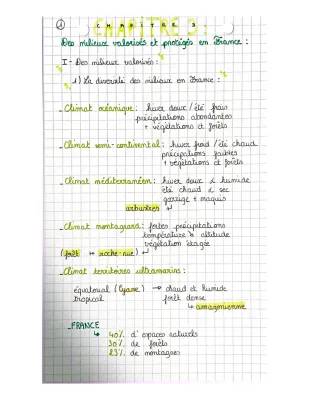 ①
CHAPITRE 3 :
Des milieux valorisés et protégés en France :
I - Des milieux valorisés :
1) La diversité des milieux en France :
- Climat océanique : hiver doux / été frais
précipitations abondantes
+ végétations et forêts
- Climat semi-continental : hiver froid / été chaud
précipitations faibles
+ végétations et forêts
- Climat méditerranéen : hiver doux & humide
été chaud & sec
garrigue + maquis
arbustres ↲
- Climat montagnard : fortes précipitations
température & altitude
végétation étagée
(forêt ↔ roche-nue) ↲
- Climat territoires ultramarins :
équatorial (Guyane) → chaud et humide
tropical forêt dense
↳ amazonienne
- FRANCE
↳ 40% d'espaces naturels
30% de forêts
23% de montagnes